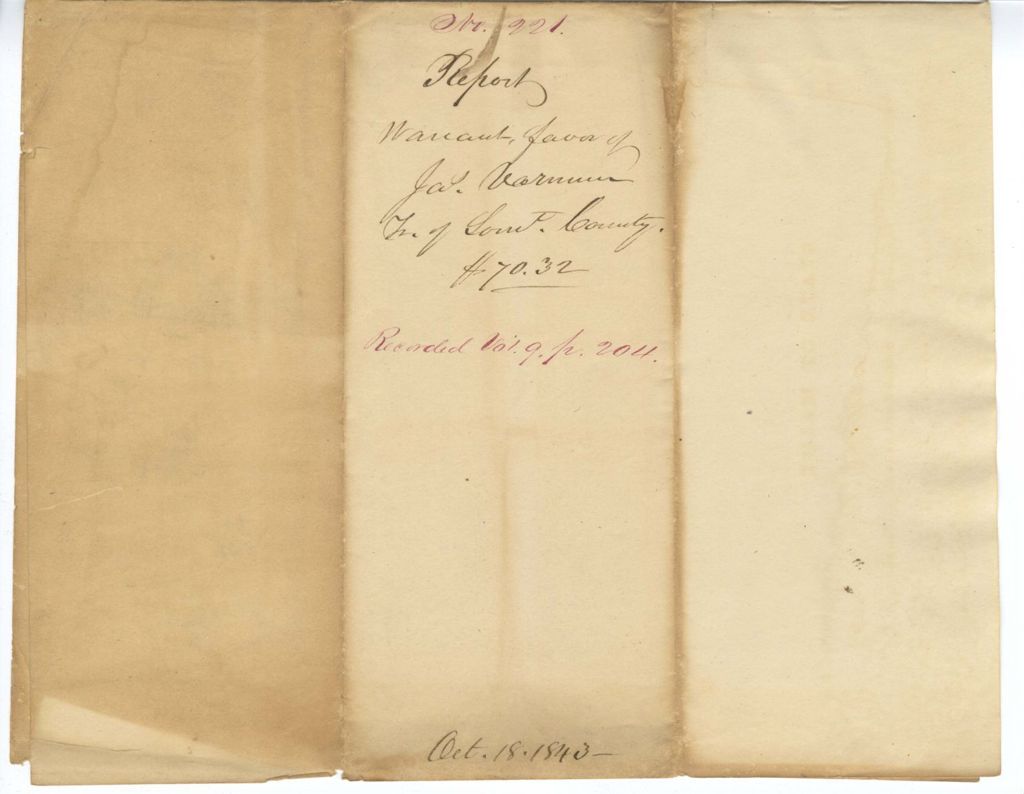 No. 221.
Report
Warrant, favor of
Jas. Varnum
Tr. of Somt. County.
$70.32
Recorded Vol. 9. p. 204.
Oct. 18. 1843-